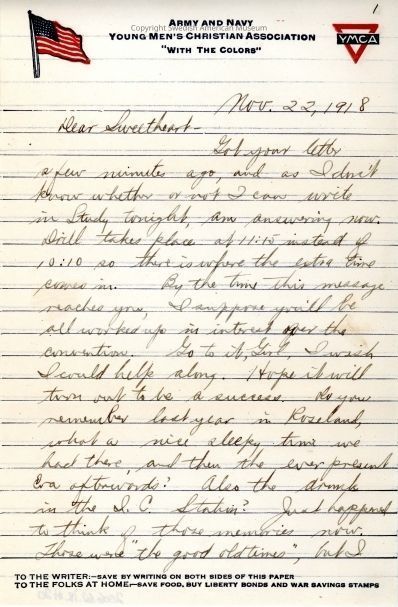 1
Copyright Swedish American Museum
ARMY AND NAVY
YOUNG MEN'S CHRISTIAN ASSOCIATION
"WITH THE COLORS"
YMCA
Nov. 22, 1918
Dear Sweetheart -
Got your letter
a few minutes ago, and as I don't
know whether or not I can write
in Study tonight, am answering now.
Drill takes place at 11:15 instead of
10:10 so there is where the extra time
comes in. By the time this message
reaches you, I suppose you'll be
all worked up in interest over the
convention. Go to it, Girl, I wish
I could help along. Hope it will
turn out to be a success. Do you
remember last year in Roseland,
what a nice sleepy time we
had there, and then the ever present
Eva afterwards? Also the drunk
in the I. C. Station? Just happened
to think of those memories now.
Those were "the good old times", but I
TO THE WRITER:-SAVE BY WRITING ON BOTH SIDES OF THIS PAPER
TO THE FOLKS AT HOME:-SAVE FOOD, BUY LIBERTY BONDS AND WAR SAVINGS STAMPS